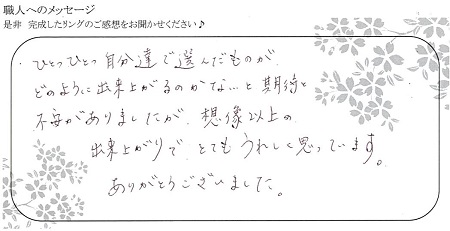 職人へのメッセージ
是非 完成したリングのご感想をお聞かせください♪
ひとつひとつ自分達で選んだものが、
どのように出来上がるのかな…と期待と
不安がありましたが、想像以上の
出来上がりで、とてもうれしく思っています。
ありがとうございました。